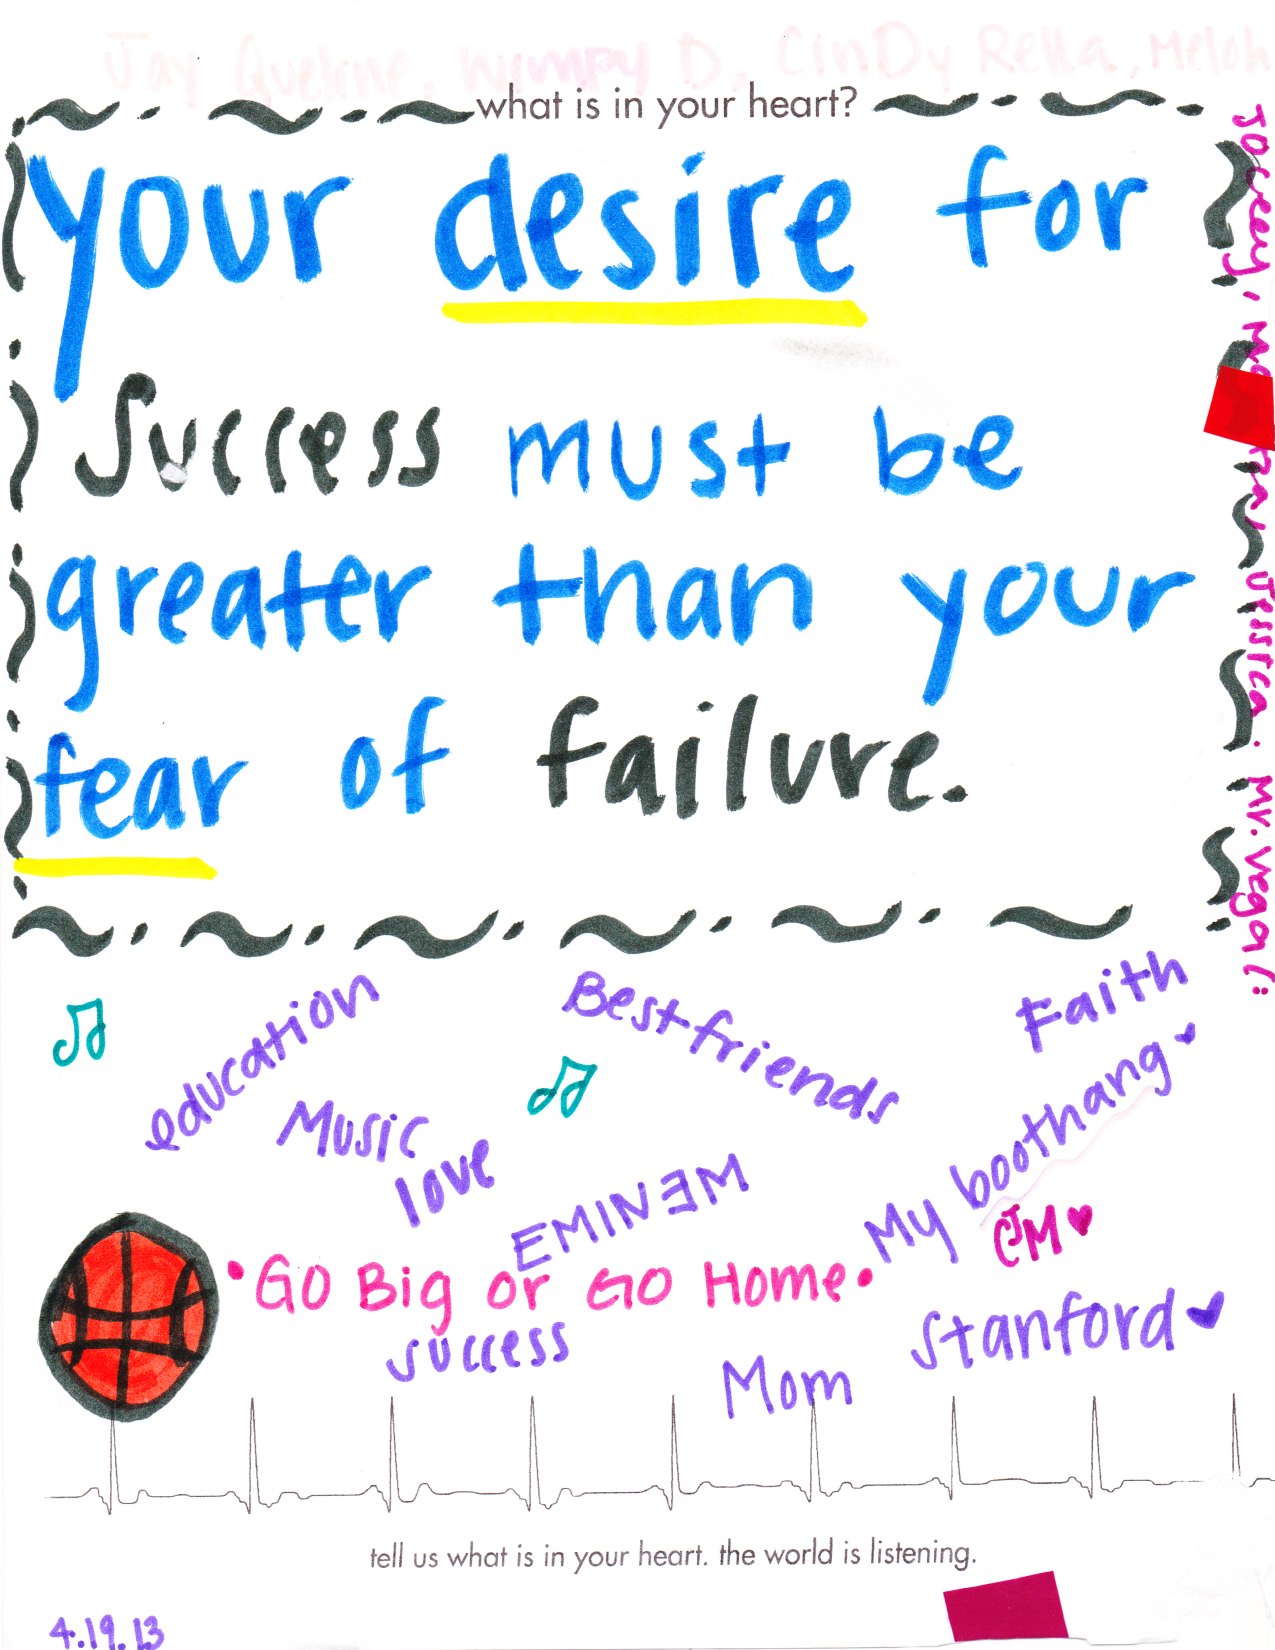 Jay Quelene, Wimpy D, CinDy Rella, Meloh
what is in your heart?
your desire for
Success must be
greater than your
fear of failure.
Joceeey,
Jessica. Mr. Vega (:
education
Best friends
Faith
Music
love
EMINƎM
My boothang
CJM
• Go Big or Go Home •
success
Mom
Stanford
tell us what is in your heart. the world is listening.
4.19.13